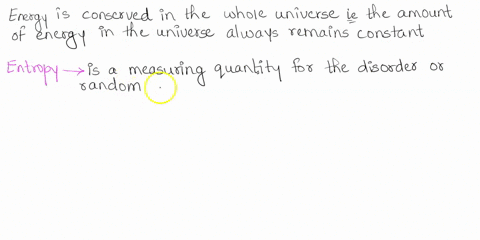 Energy is conserved in the whole universe ie the amount
of energy in the universe always remains constant
Entropy → is a measuring quantity for the disorder or
random